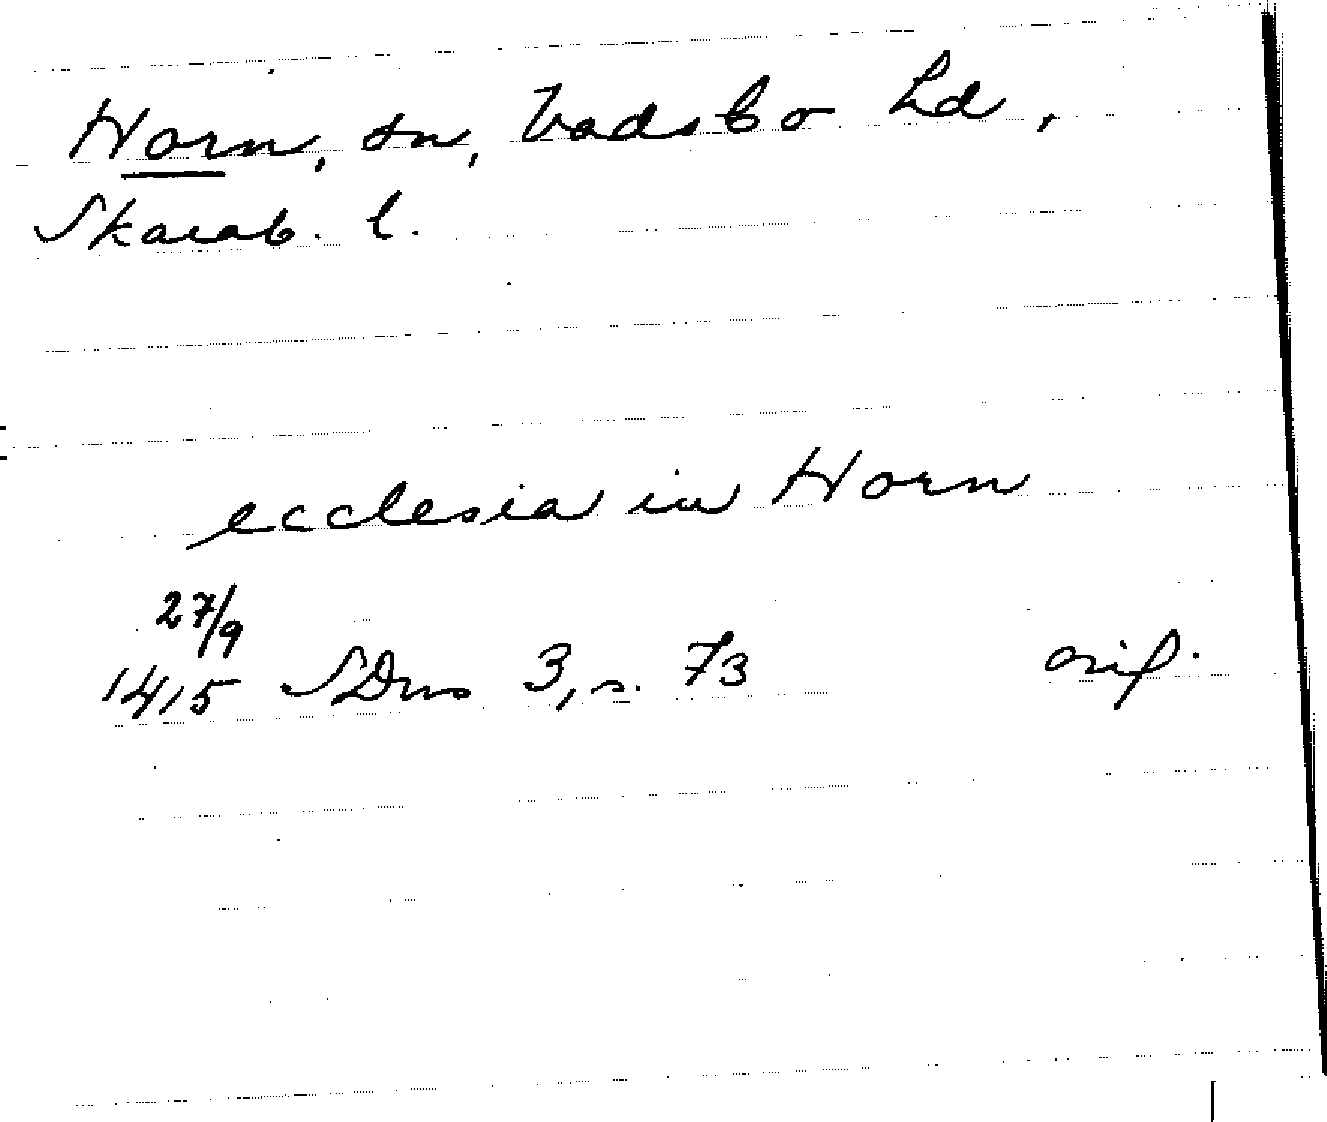 Horn, sn, Vadsbo hd,
Skarab. l.
ecclesia in Horn
27/9
1415 SDns 3, s. 73 orig.